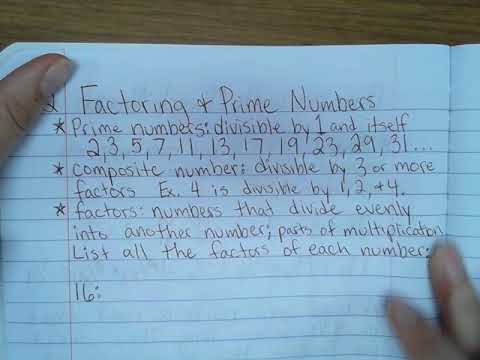 Factoring & Prime Numbers
* Prime numbers: divisible by 1 and itself
2, 3, 5, 7, 11, 13, 17, 19, 23, 29, 31...
* composite number: divisible by 3 or more
factors Ex. 4 is divisible by 1, 2, & 4.
* factors: numbers that divide evenly
into another number; parts of multiplication
List all the factors of each number:
16: